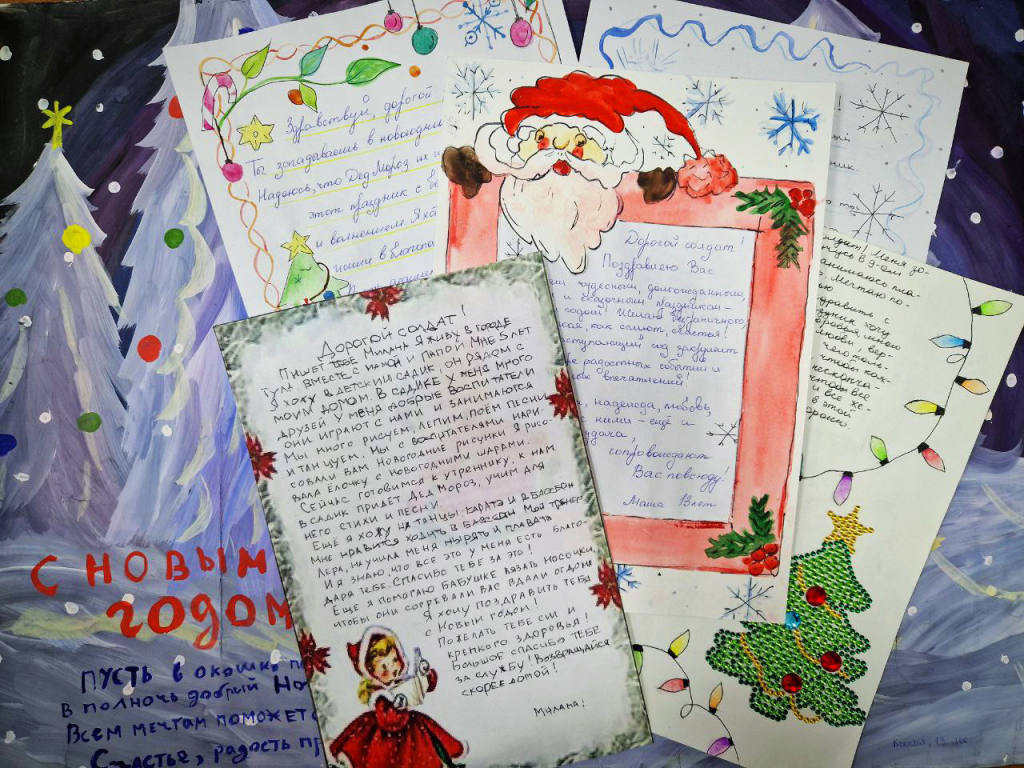 Здравствуй, дорогой
Ты западаешь в новогодн
Надеюсь, что Дед Мороз их и
этот праздник с
и волнением. Я хо
ник
Дорогой солдат!
Поздравляю Вас
чудесным, долгожданным,
и сказочным праздником -
годом! Желаю безграничного,
как салют, счастья!
наступающий год закружит
радостных событий и
впечатлений!
надежда, любовь,
ними - ещё и
удача,
сопровождают
Вас повсюду!
Маша 13 лет
солдат! Меня зо-
учусь в 9-ом
занимаюсь пла-
Мечтаю по-
здравить с
хочу
здоровья,
любви, вер-
чтобы
чтобы все
и все же-
в этой
ДОРОГОЙ СОЛДАТ!
ПИШЕТ ТЕБЕ МИЛАНА. Я ЖИВУ В ГОРОДЕ
ТУЛА ВМЕСТЕ С МАМОЙ И ПАПОЙ. МНЕ 5 ЛЕТ
Я ХОЖУ В ДЕТСКИЙ САДИК, ОН РЯДОМ С
МОИМ ДОМОМ. В САДИКЕ У МЕНЯ МНОГО
ДРУЗЕЙ У МЕНЯ ДОБРЫЕ ВОСПИТАТЕЛИ
ОНИ ИГРАЮТ С НАМИ И ЗАНИМАЮТСЯ
МЫ МНОГО РИСУЕМ, ЛЕПИМ, ПОЁМ ПЕСНИ
И ТАНЦУЕМ. МЫ С ВОСПИТАТЕЛЯМИ НАРИ-
СОВАЛИ ВАМ НОВОГОДНИЕ РИСУНКИ Я РИСО-
ВАЛА ЁЛОЧКУ С НОВОГОДНИМИ ШАРАМИ.
СЕЙЧАС ГОТОВИМСЯ К УТРЕННИКУ, К НАМ
В САДИК ПРИДЕТ ДЕД МОРОЗ, УЧИМ ДЛЯ
НЕГО СТИХИ И ПЕСНИ.
ЕЩЕ Я ХОЖУ НА ТАНЦЫ КАРАТЭ И В БАССЕЙН
МНЕ НРАВИТСЯ ХОДИТЬ В БАССЕЙН МОЙ ТРЕНЕР
ЛЕРА, НАУЧИЛА МЕНЯ НЫРЯТЬ И ПЛАВАТЬ
И Я ЗНАЮ, ЧТО ВСЕ ЭТО У МЕНЯ ЕСТЬ БЛАГО-
ДАРЯ ТЕБЕ. СПАСИБО ТЕБЕ ЗА ЭТО!
ЕЩЕ Я ПОМОГАЮ БАБУШКЕ ВЯЗАТЬ НОСОЧКИ,
ЧТОБЫ ОНИ СОГРЕВАЛИ ВАС ВДАЛИ ОТ ДОМА
Я ХОЧУ ПОЗДРАВИТЬ ТЕБЯ
С НОВЫМ ГОДОМ!
ПОЖЕЛАТЬ ТЕБЕ СИЛ И
КРЕПКОГО ЗДОРОВЬЯ!
БОЛЬШОЕ СПАСИБО ТЕБЕ
ЗА СЛУЖБУ! ВОЗВРАЩАЙСЯ
СКОРЕЕ ДОМОЙ!
МИЛАНА!
С НОВЫМ
ГОДОМ
ПУСТЬ в окошко по
В полночь добрый Но
Всем мечтам поможет с
Счастье, радость пр